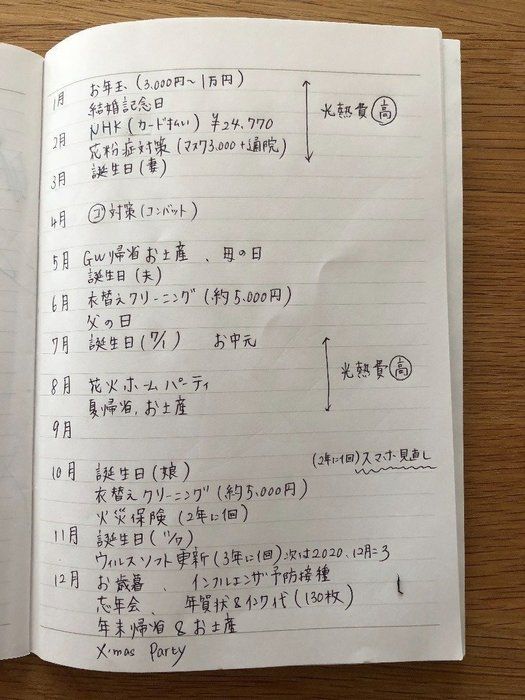 1月 お年玉 (3,000円〜1万円)
結婚記念日
光熱費 高
2月 NHK (カード払い) ¥24,770
花粉症対策 (マスク3,000+通院)
3月 誕生日 (妻)
4月 ゴ 対策 (コンバット)
5月 GW帰省お土産、母の日
誕生日 (夫)
6月 衣替えクリーニング (約5,000円)
父の日
7月 誕生日 (7/1) お中元
光熱費 高
8月 花火ホームパーティ
夏帰省、お土産
9月
(2年に1回) スマホ見直し
10月 誕生日 (娘)
衣替えクリーニング (約5,000円)
火災保険 (2年に1回)
11月 誕生日 (11/7)
ウィルスソフト更新 (3年に1回) 次は2020、12月
12月 お歳暮、インフルエンザ予防接種
忘年会、年賀状&インク代 (130枚)
年末帰省&お土産
X'mas Party